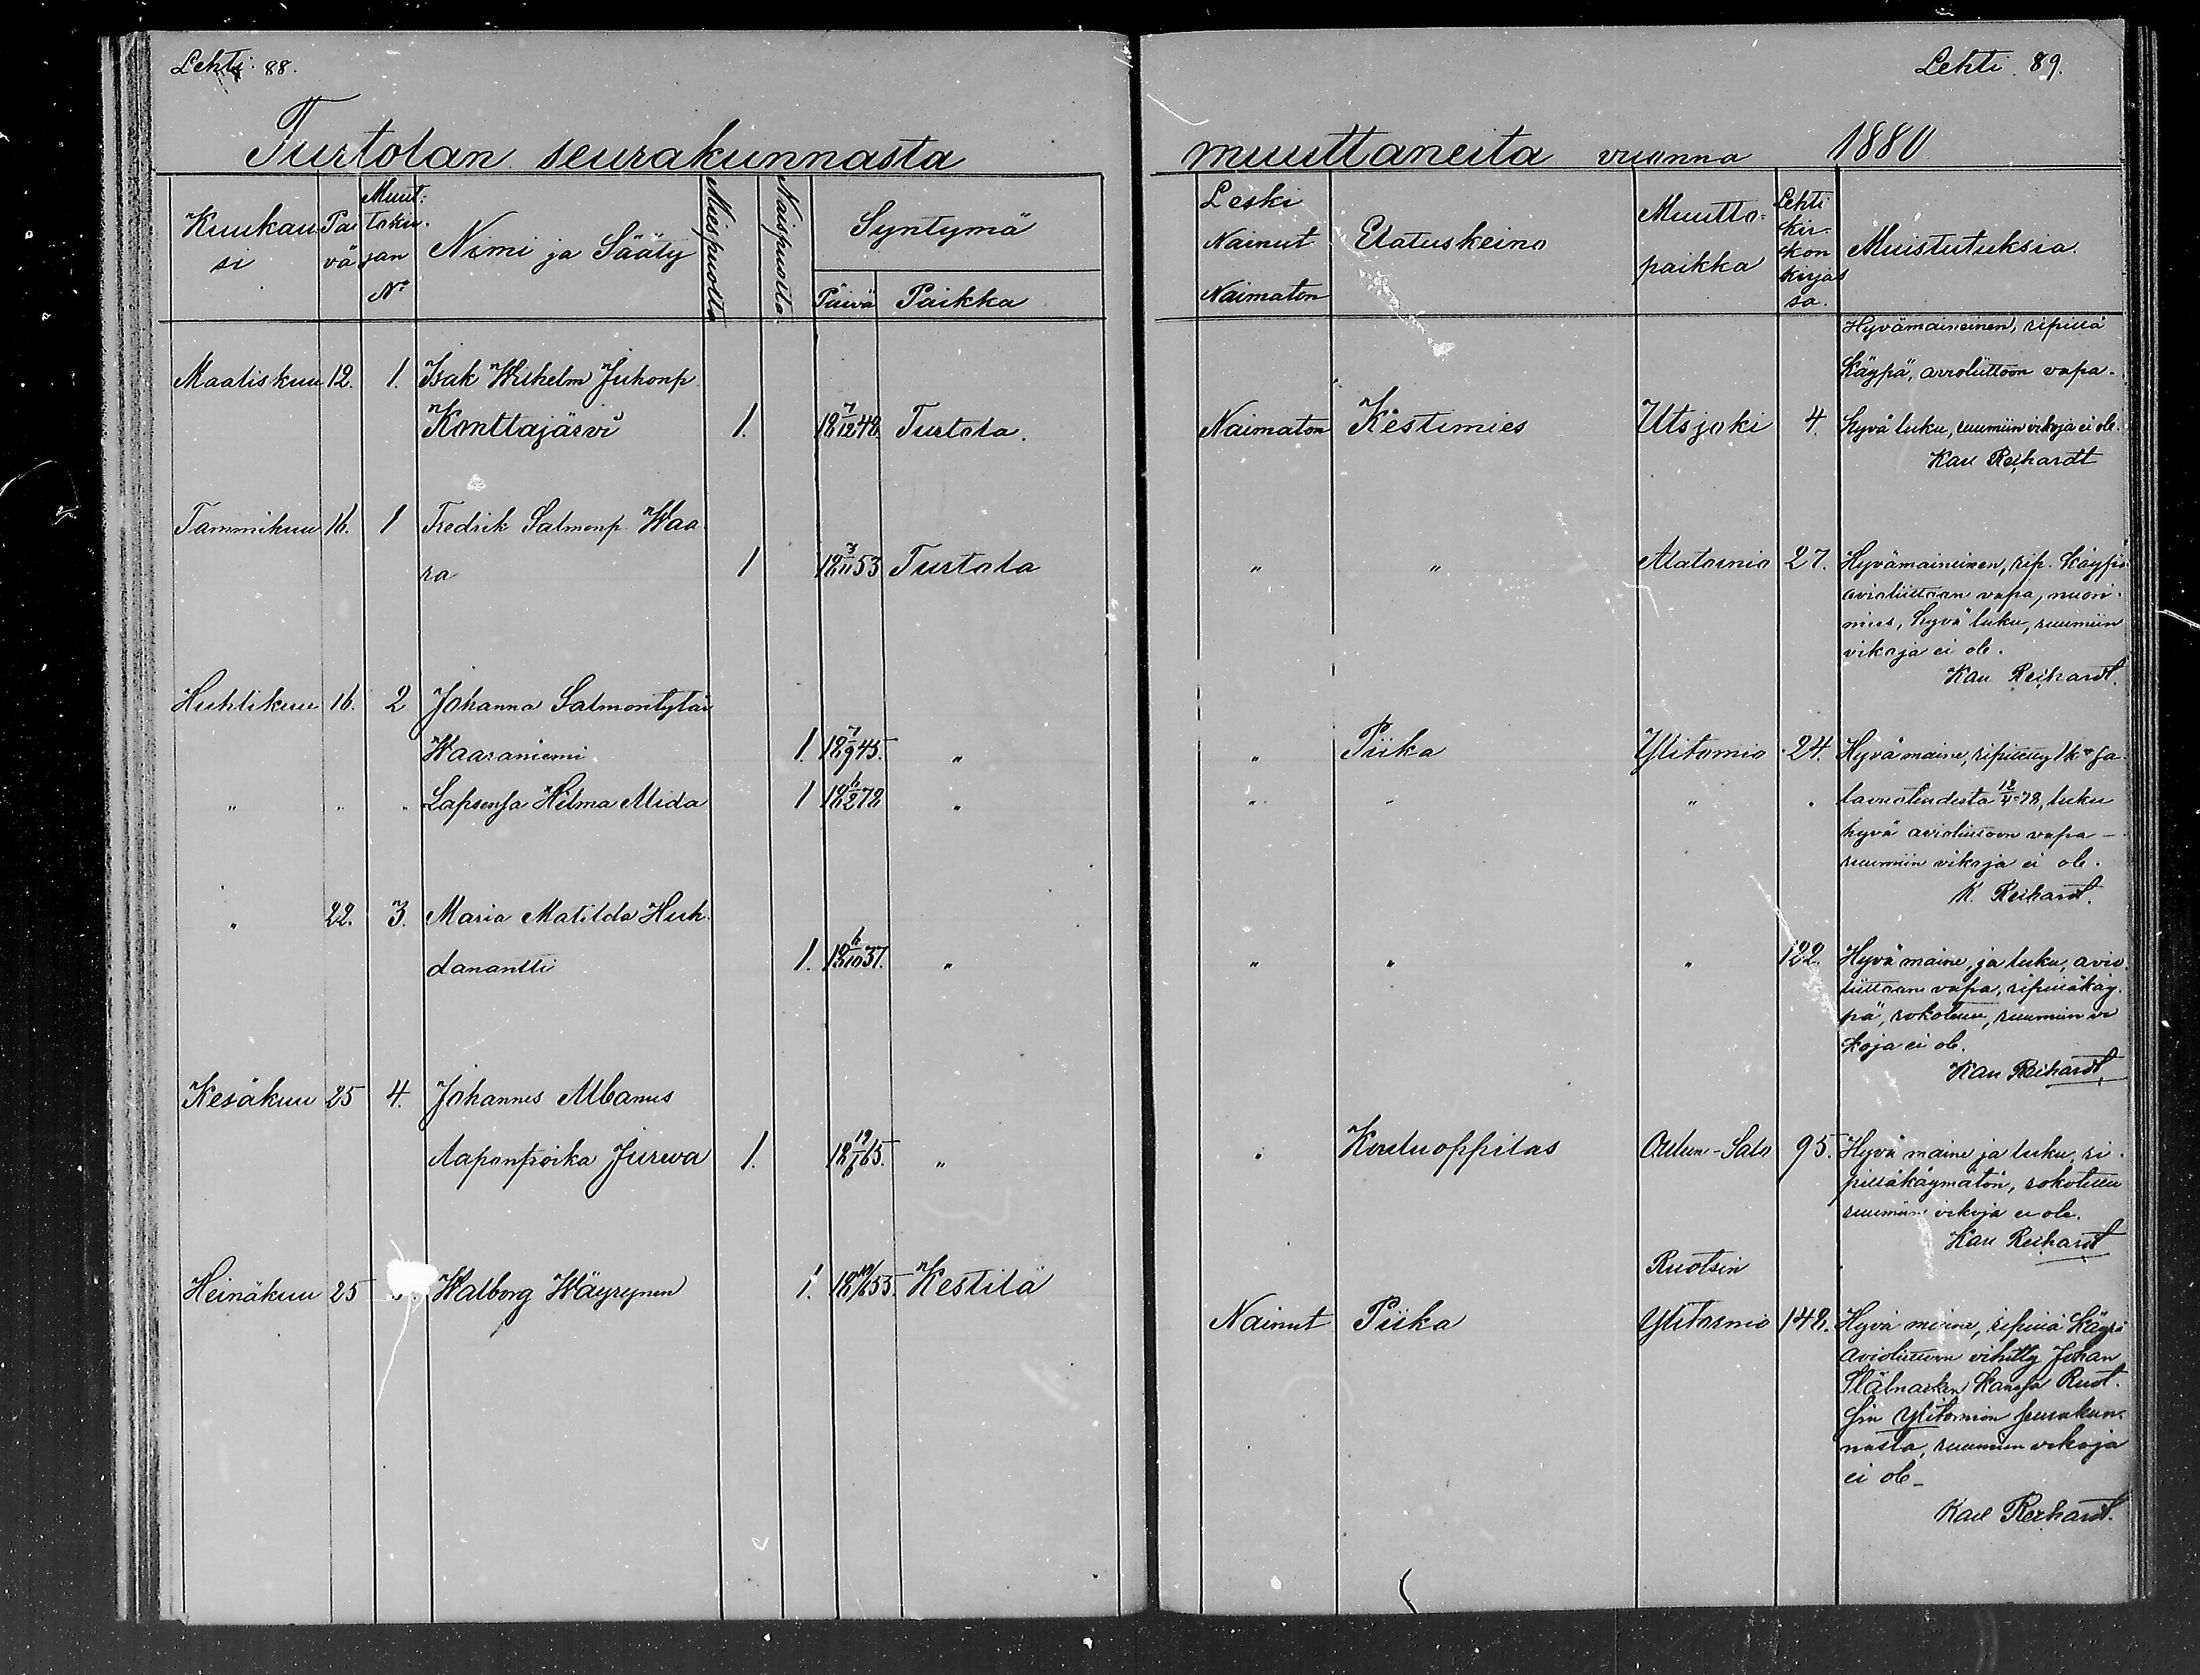 Lehti 88.
Turtolan seurakunnasta
Kuukausi
Päivä
Muuttokirjan No
Nimi ja Sääty
Miespuolta
Naispuolta
Syntymä
Päivä
Paikka
Maaliskuu 12. 1. Isak Wilhelm Juhonp.
Konttajärvi 1. 18 7/12 48. Turtola.
Tammikuu 16. 1 Fredrik Salmonp. Waa-
ra 1 18 3/11 53 Turtola
Huhtikuu 16. 2 Johanna Salmontytär
Waaraniemi 1. 18 7/9 45. "
" " " Lapsensa Hilma Alida 1 18 6/2 78 "
" 22. 3. Maria Matilda Huh-
danantti 1. 18 6/10 37. "
Kesäkuu 25 4. Johannes Albanus
Aaponpoika Jurwa 1. 18 19/6 65. "
Heinäkuu 25 Walborg Wäyrynen 1. 18 /6 55. Kestilä
Lehti 89.
muuttaneita vuonna 1880
Leski
Nainut
Naimaton
Elatuskeino
Muutto-
paikka
Lehti
kir-
kon
kirjas
sa.
Muistutuksia.
Hyvämaineinen, ripillä
Käypä, avioliittoon vapa-
Naimaton Kestimies Utsjoki 4. hyvä luku, ruumiin vikoja ei ole.
Karl Reihardt
" " Alatornio 27. Hyvämaineinen, rip. käypä
avioliittoon vapa, nuori-
mies, hyvä luku, ruumiin
vikoja ei ole.
Karl Reihardt.
" Piika Ylitornio 24. Hyvä maine,
" " " " 12/4 78, luku
hyvä avioliittoon vapa-
ruumiin vikoja ei ole.
K. Reihardt.
" " " 122. Hyvä maine, ja luku, avio-
liittoon vapa, ripilläkäy-
pä, rokotettu, ruumiin vi-
koja ei ole.
Karl Reihardt
" Kouluoppilas Oulun-Salo 95. Hyvä maine ja luku, ri-
pilläkäymätön, rokotettu
ruumiin vikoja ei ole.
Karl Reihardt
Ruotsin
Nainut Piika Ylitornio 148. Hyvä maine, ripillä käypä
avioliittoon vihitty Johan
kanssa Ruot-
sin Ylitornion seurakun-
nasta, ruumiin vikoja
ei ole-
Karl Reihardt.